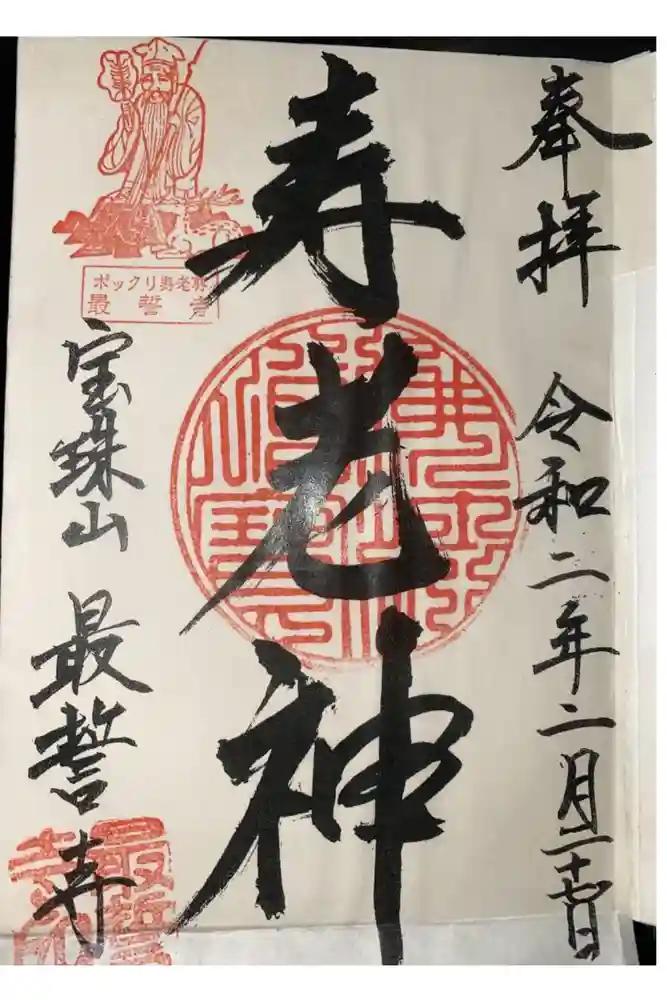 奉拝
令和二年二月二十七日
寿老神
ポックリ寿老神
最誓寺
宝珠山
最誓寺
最誓寺